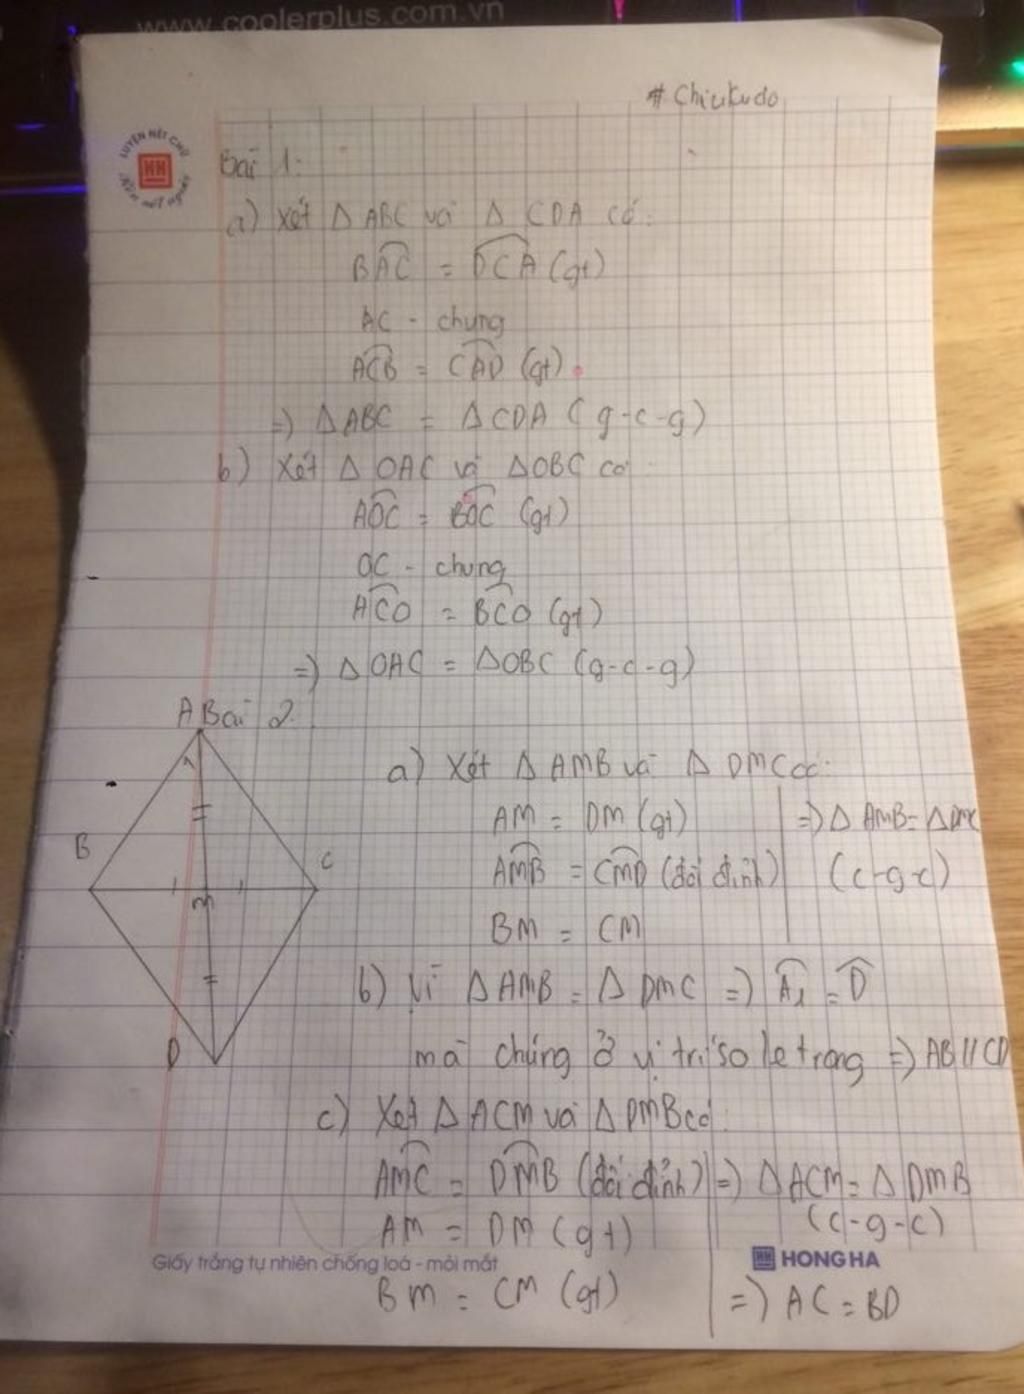 www.coolerplus.com.vn
#Chiikudo
LUYỆN NÉT CHỮ
HH
Rèn nết người
Bài 1:
a) Xét Δ ABC và Δ CDA có:
BAC = DCA (gt)
AC - chung
ACB = CAD (gt)
=> Δ ABC = Δ CDA (g-c-g)
b) Xét Δ OAC và Δ OBC có:
AOC = BOC (gt)
OC - chung
ACO = BCO (gt)
=> Δ OAC = Δ OBC (g-c-g)
A Bài 2:
a) Xét Δ AMB và Δ DMC có:
AM = DM (gt) => Δ AMB = Δ DMC
B
C
AMB = CMD (đối đỉnh) (c-g-c)
M
BM = CM
b) Vì Δ AMB = Δ DMC => A1 = D
D
mà chúng ở vị trí so le trong => AB // CD
c) Xét Δ ACM và Δ DMB có:
AMC = DMB (đối đỉnh) => Δ ACM = Δ DMB
AM = DM (gt) (c-g-c)
Giấy trắng tự nhiên chống loá - mỏi mắt
HH HONG HA
BM = CM (gt) => AC = BD